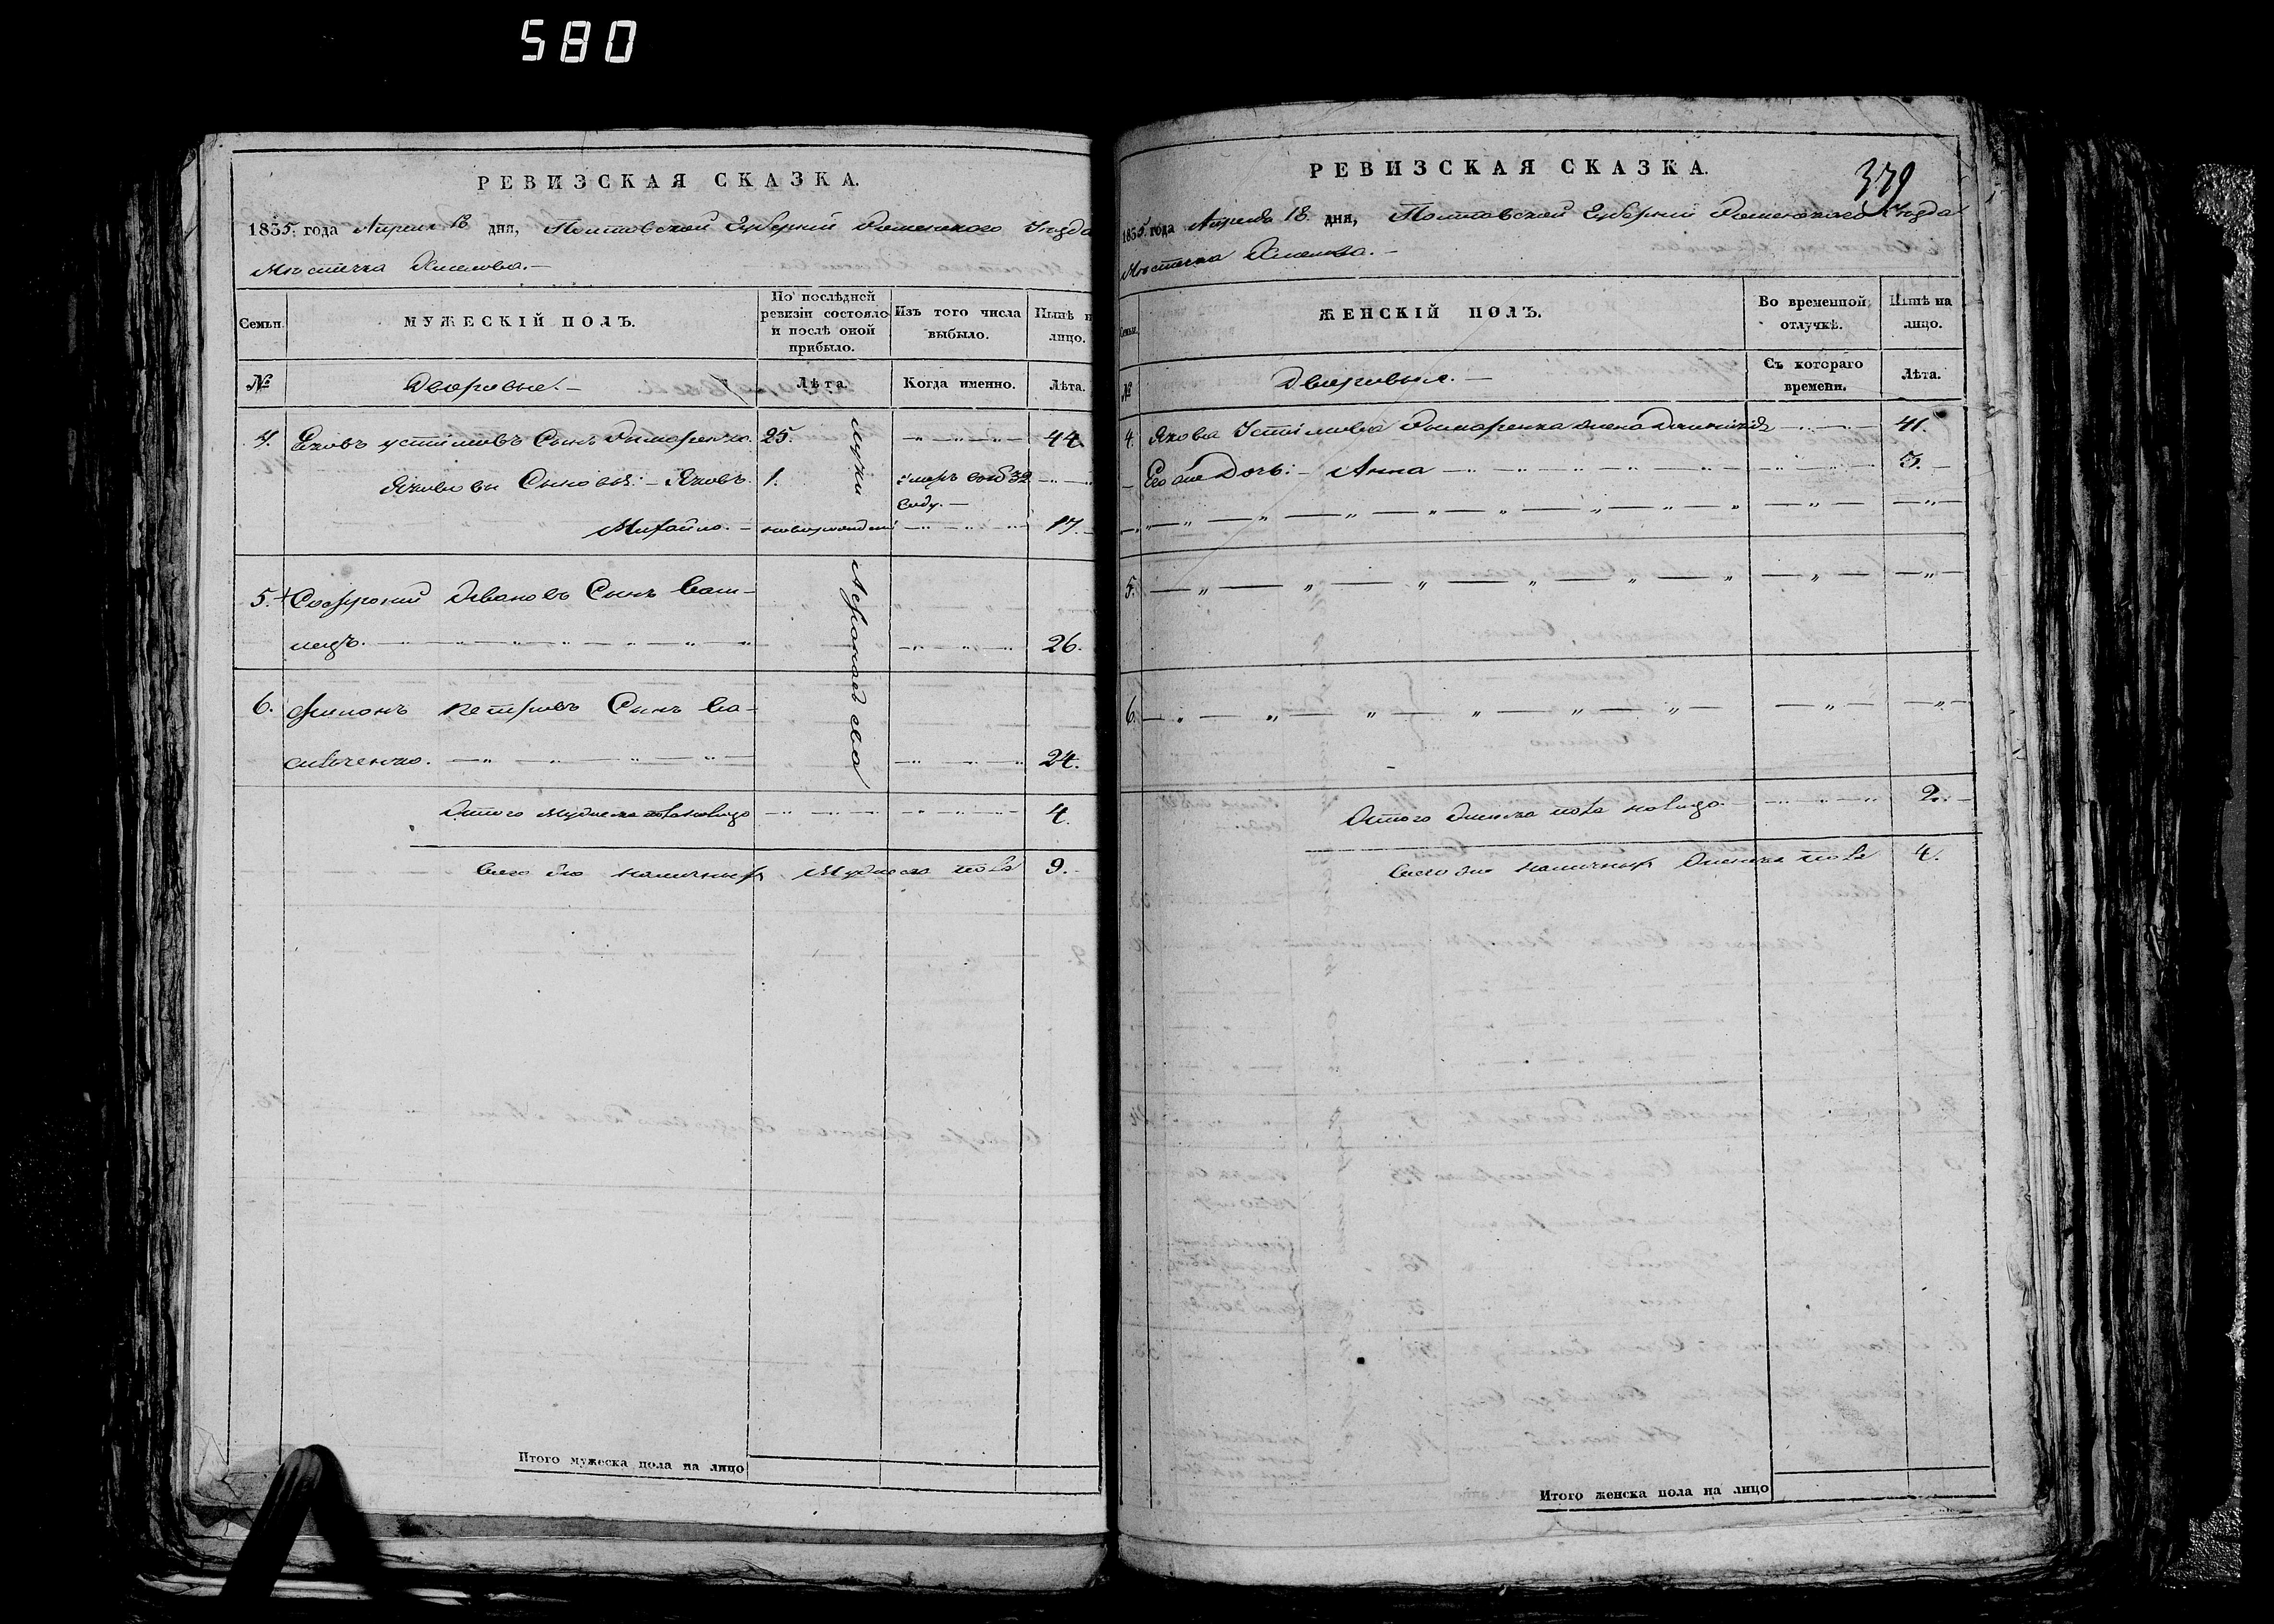 580
РЕВИЗСКАЯ СКАЗКА.
1835 года Апреля 18 дня, Полтавской Губернии Роменского Уезда
Местечка Хмелова. —
Семьи.
МУЖЕСКІЙ ПОЛЪ.
По послѣдней ревизіи состояло и послѣ оной прибыло.
Изъ того числа выбыло.
Нынѣ на лицо.
№
Дворовые. —
Лѣта.
Когда именно.
Лѣта.
4. Яковъ Устимовъ Сынъ Римаренко. 25. 44.
Яковы Сыновья: — Яковъ 1. умеръ в 1832
году. —
Михайло. — новорожденный 17.
5. Софроний Ивановъ Сынъ
26.
6. Филонъ Петровъ Сынъ Ва-
сильченко. 24.
Итого мужеска пола налицо 4.
Всего наличныхъ мужеска пола 9.
Итого мужеска пола на лицо
РЕВИЗСКАЯ СКАЗКА.
379
1835 года Апреля 18 дня, Полтавской Губернии Роменского Уезда
Местечка Хмелова. —
Семьи.
ЖЕНСКІЙ ПОЛЪ.
Во временной отлучкѣ.
Нынѣ на лицо.
№
Дворовые. —
Съ котораго времени.
Лѣта.
4. Якова Устимова Римаренка жена 41.
Его же Дочь: — Анна 3.
5.
6.
Итого женска пола налицо 2.
Всего наличныхъ женска пола 4.
Итого женска пола на лицо